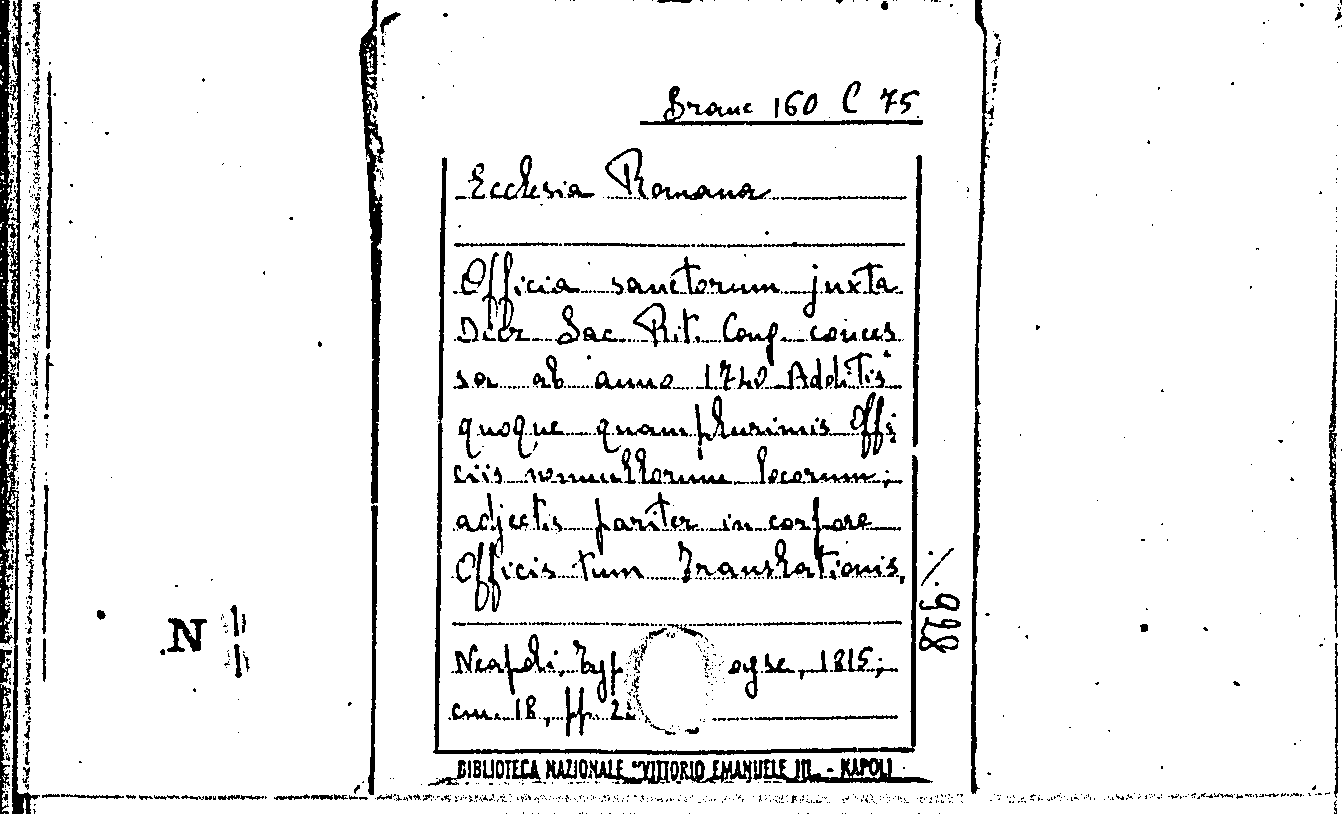 Branc 160 C 75
Ecclesia Romana
Officia sanctorum juxta
Decr Sac Rit. Cong. conces
sa ab anno 1740 Additis
quoque quamplurimis Offi
ciis nonnullorum locorum;
adjectis pariter in corpore
Officis tum Translationis,
Neapoli, Typ
1815;
cm. 18, pp.
./. 928
BIBLIOTECA NAZIONALE "VITTORIO EMANUELE III" - NAPOLI
N